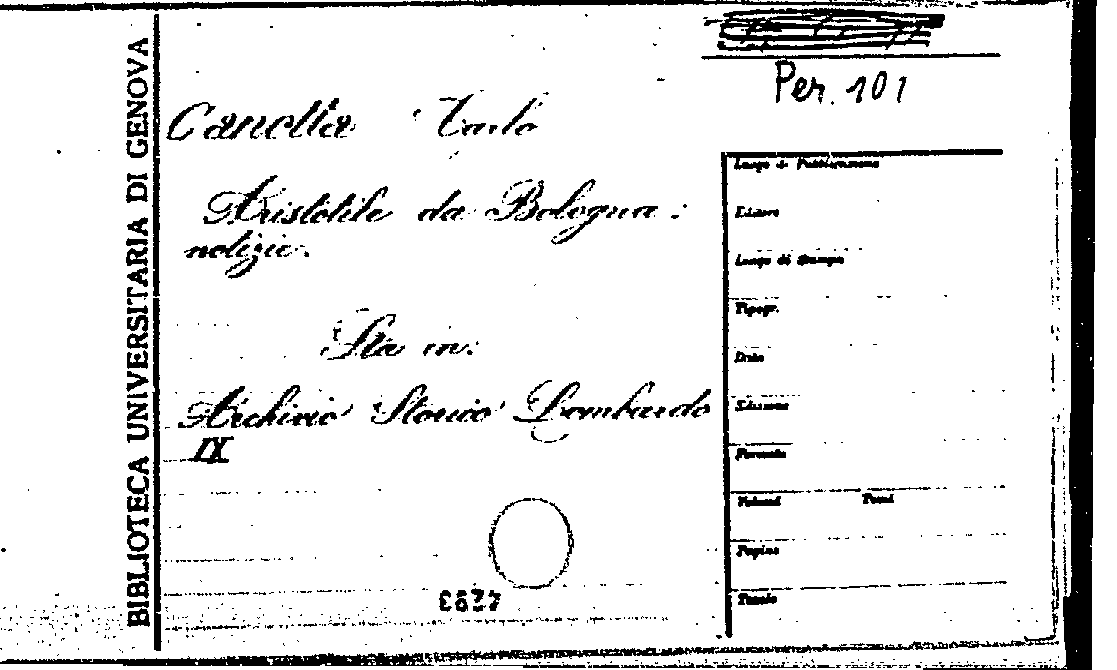 BIBLIOTECA UNIVERSITARIA DI GENOVA
Per. 101
Canetta Carlo
Aristotile da Bologna:
notizie.
Sta in:
Archivio Storico Lombardo
IX
Luogo di Pubblicazione
Editore
Luogo di Stampa
Tipogr.
Data
Edizione
Formato
Volumi Tomi
Pagine
Tavole